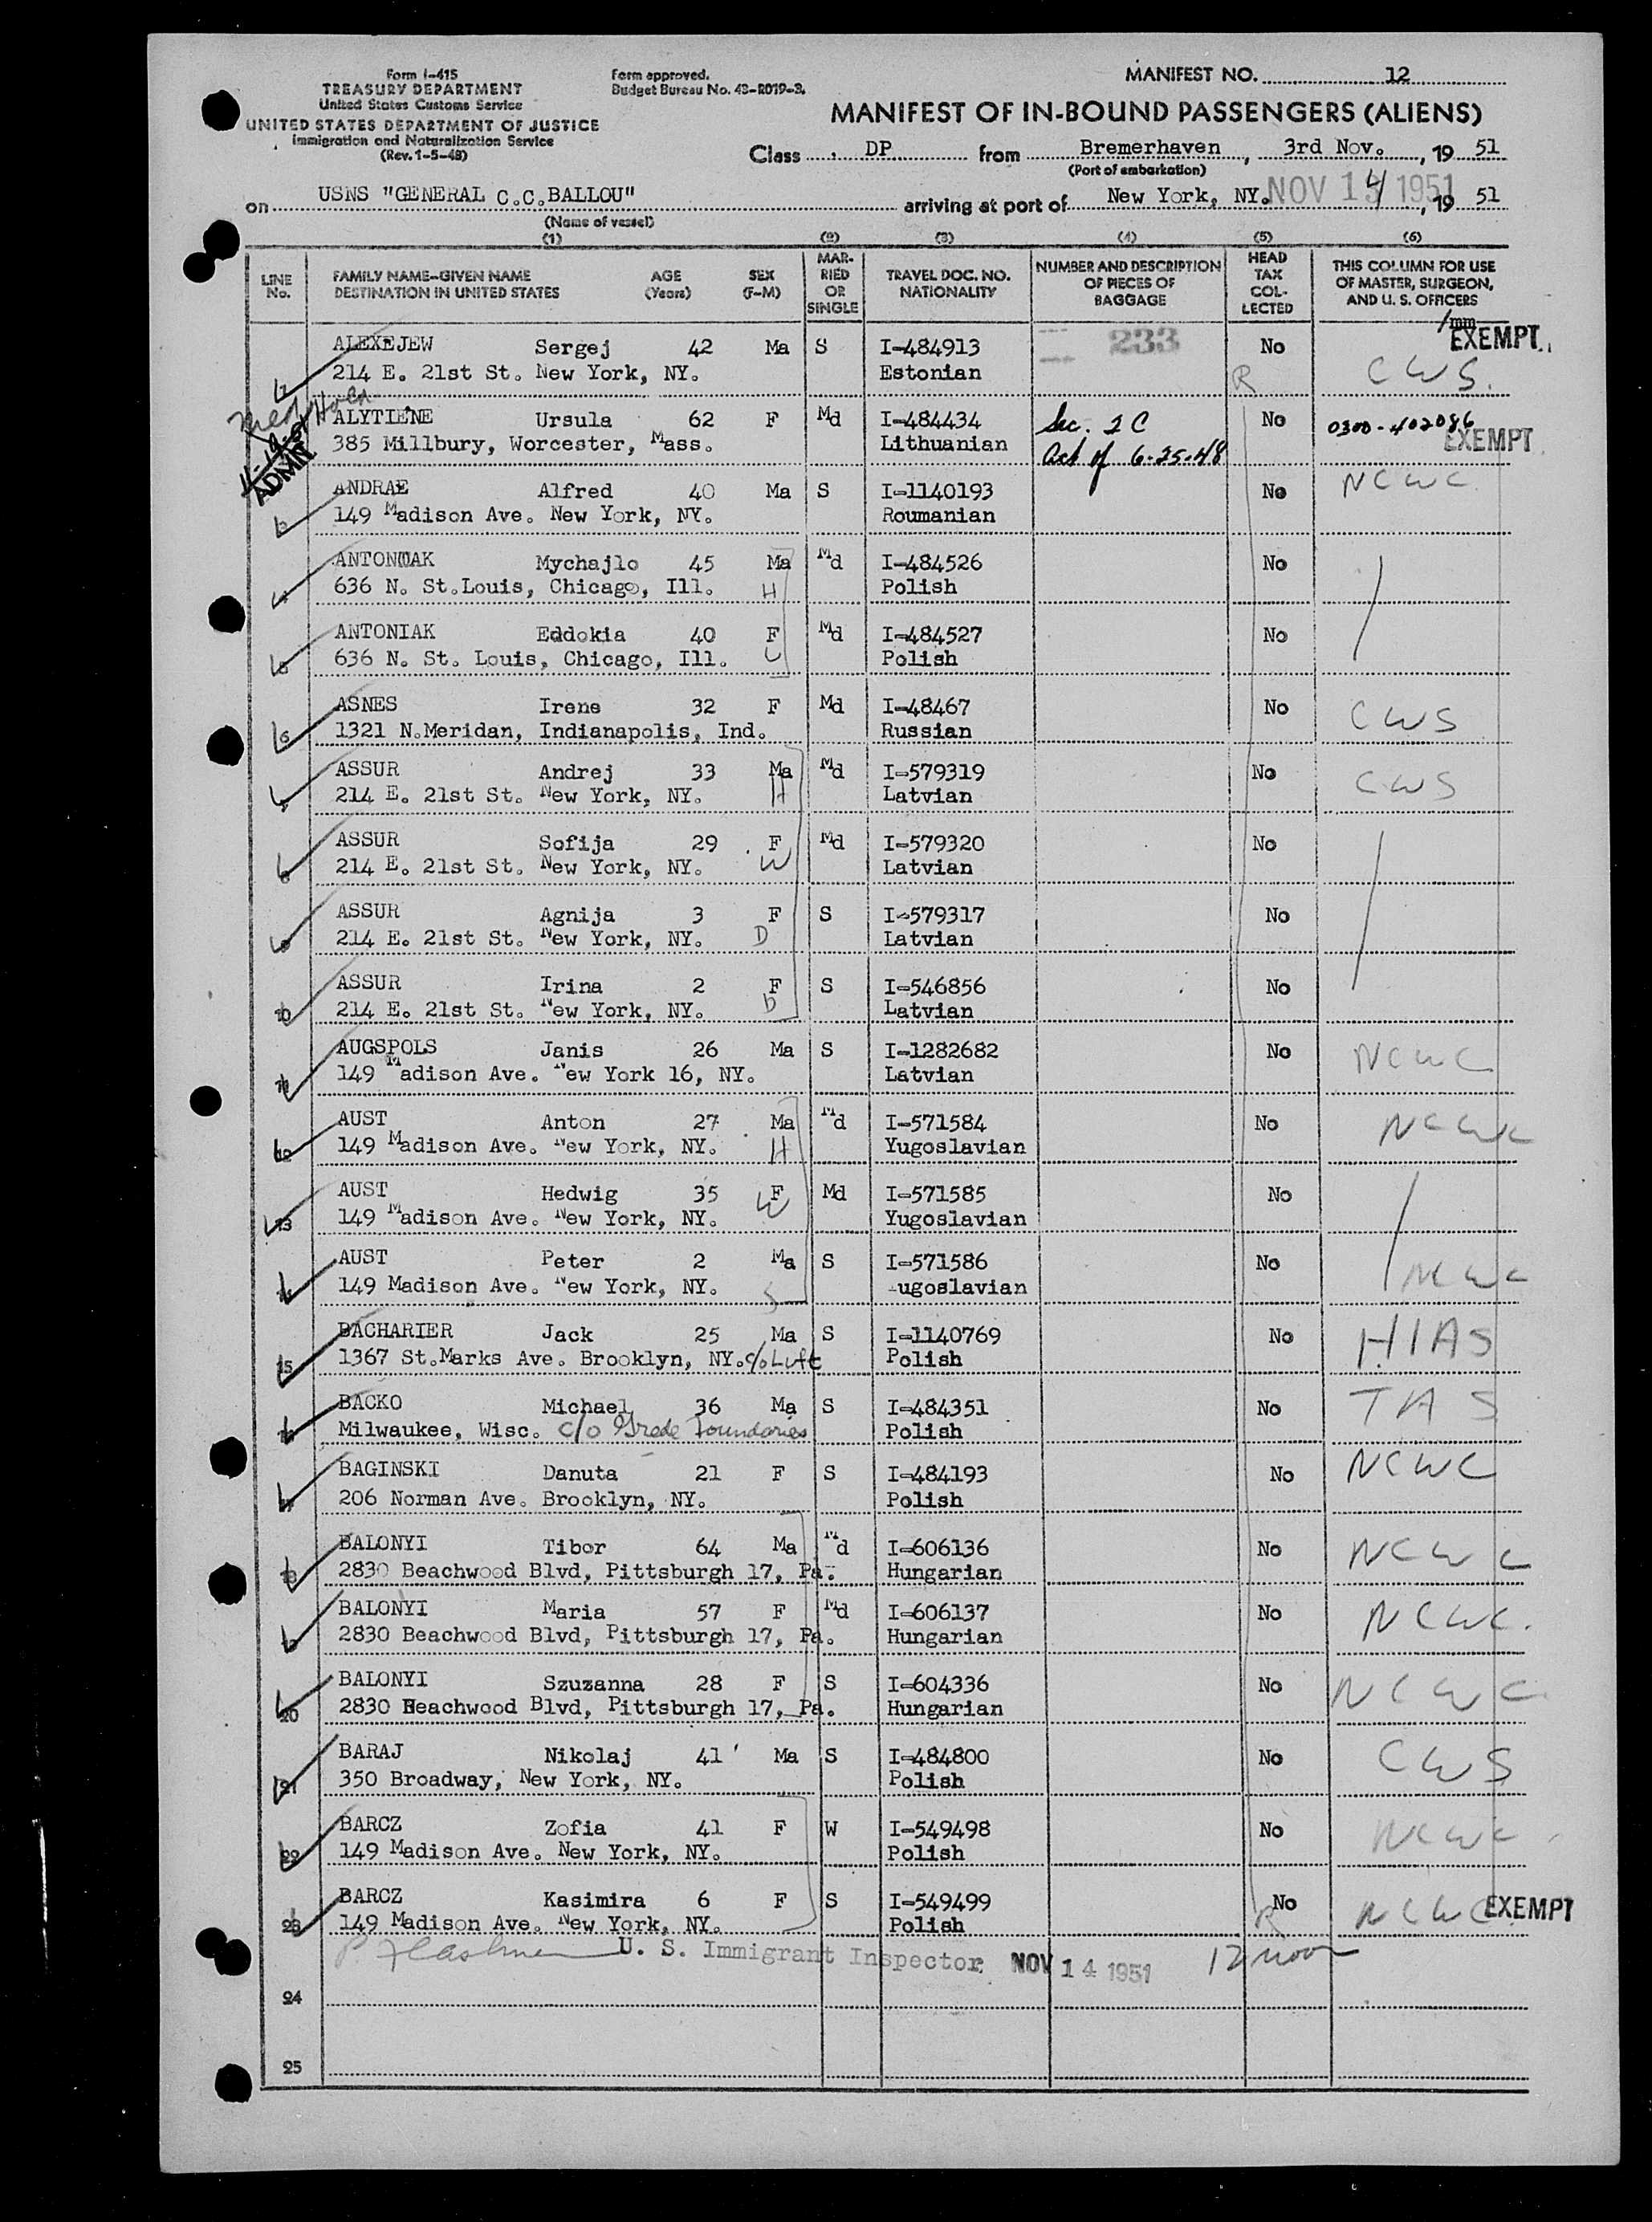 Form I-415
TREASURY DEPARTMENT
United States Customs Service
UNITED STATES DEPARTMENT OF JUSTICE
Immigration and Naturalization Service
(Rev. 1-5-48)
Form approved.
Budget Bureau No. 43-R019-3.
MANIFEST NO. 12
MANIFEST OF IN-BOUND PASSENGERS (ALIENS)
Class DP from Bremerhaven, 3rd Nov., 19 51
(Port of embarkation)
on USNS "GENERAL C.C.BALLOU" arriving at port of New York, NY. NOV 14 1951, 19 51
(Name of vessel)
(1) (2) (3) (4) (5) (6)
LINE No. FAMILY NAME-GIVEN NAME DESTINATION IN UNITED STATES AGE (Years) SEX (F-M) MARRIED OR SINGLE TRAVEL DOC. NO. NATIONALITY NUMBER AND DESCRIPTION OF PIECES OF BAGGAGE HEAD TAX COLLECTED THIS COLUMN FOR USE OF MASTER, SURGEON, AND U. S. OFFICERS
ALEXEJEW Sergej 42 Ma S I-484913 233 No EXEMPT
214 E. 21st St. New York, NY. Estonian R CWS.
ALYTIENE Ursula 62 F Md I-484434 Sec. 2 C No 0300-402086
385 Millbury, Worcester, Mass. Lithuanian Act of 6-25-48 EXEMPT
ADMIT
3 ANDRAE Alfred 40 Ma S I-1140193 No NCWC
149 Madison Ave. New York, NY. Roumanian
4 ANTONIAK Mychajlo 45 Ma Md I-484526 No
636 N. St.Louis, Chicago, Ill. H Polish
5 ANTONIAK Eddokia 40 F Md I-484527 No
636 N. St. Louis, Chicago, Ill. W Polish
6 ASNES Irene 32 F Md I-48467 No CWS
1321 N.Meridan, Indianapolis, Ind. Russian
7 ASSUR Andrej 33 Ma Md I-579319 No CWS
214 E. 21st St. New York, NY. H Latvian
8 ASSUR Sofija 29 F Md I-579320 No
214 E. 21st St. New York, NY. W Latvian
9 ASSUR Agnija 3 F S I-579317 No
214 E. 21st St. New York, NY. D Latvian
10 ASSUR Irina 2 F S I-546856 No
214 E. 21st St. New York, NY. D Latvian
11 AUGSPOLS Janis 26 Ma S I-1282682 No NCWC
149 Madison Ave. New York 16, NY. Latvian
12 AUST Anton 27 Ma Md I-571584 No NCWC
149 Madison Ave. New York, NY. H Yugoslavian
13 AUST Hedwig 35 F Md I-571585 No
149 Madison Ave. New York, NY. W Yugoslavian
14 AUST Peter 2 Ma S I-571586 No
149 Madison Ave. New York, NY. S ugoslavian NCWC
15 BACHARIER Jack 25 Ma S I-1140769 No HIAS
1367 St.Marks Ave. Brooklyn, NY. c/o Luft Polish
16 BACKO Michael 36 Ma S I-484351 No TAS
Milwaukee, Wisc. c/o Grede Foundaries Polish
17 BAGINSKI Danuta 21 F S I-484193 No NCWC
206 Norman Ave. Brooklyn, NY. Polish
18 BALONYI Tibor 64 Ma Md I-606136 No NCWC
2830 Beachwood Blvd, Pittsburgh 17, Pa. Hungarian
19 BALONYI Maria 57 F Md I-606137 No NCWC.
2830 Beachwood Blvd, Pittsburgh 17, Pa. Hungarian
20 BALONYI Szuzanna 28 F S I-604336 No NCWC
2830 Beachwood Blvd, Pittsburgh 17, Pa. Hungarian
21 BARAJ Nikolaj 41 Ma S I-484800 No CWS
350 Broadway, New York, NY. Polish
22 BARCZ Zofia 41 F W I-549498 No NCWC
149 Madison Ave. New York, NY. Polish
23 BARCZ Kasimira 6 F S I-549499 No NCWC EXEMPT
149 Madison Ave. New York, NY. Polish R
U. S. Immigrant Inspector NOV 14 1951 12 noon
24
25